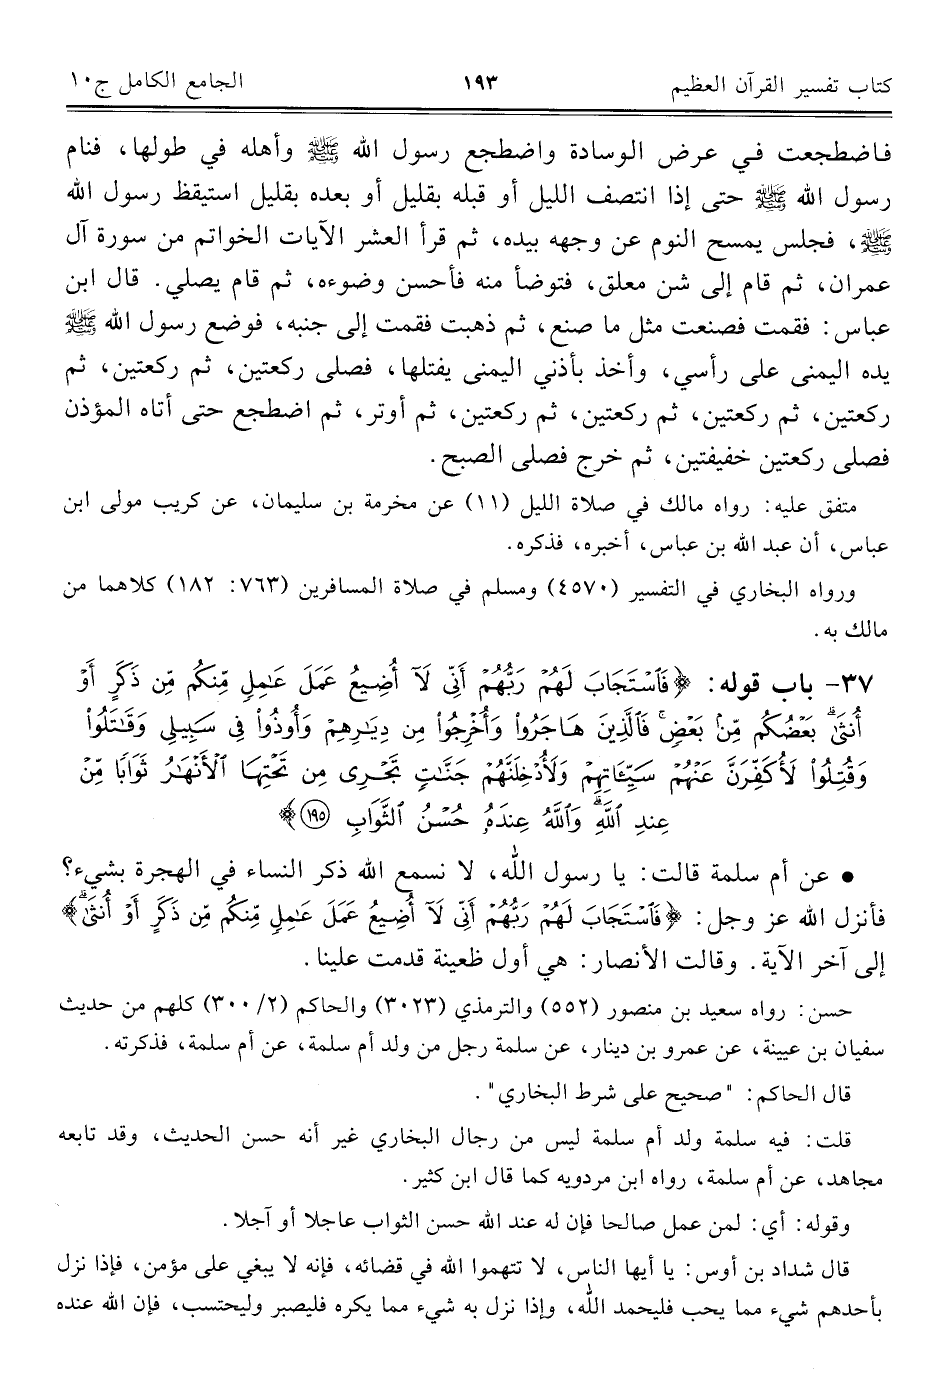 كتاب تفسير القرآن العظيم ١٩٣ الجامع الكامل ج١٠
فاضطجعت في عرض الوسادة واضطجع رسول الله ﷺ وأهله في طولها، فنام
رسول الله ﷺ حتى إذا انتصف الليل أو قبله بقليل أو بعده بقليل استيقظ رسول الله
ﷺ، فجلس يمسح النوم عن وجهه بيده، ثم قرأ العشر الآيات الخواتم من سورة آل
عمران، ثم قام إلى شن معلق، فتوضأ منه فأحسن وضوءه، ثم قام يصلي. قال ابن
عباس: فقمت فصنعت مثل ما صنع، ثم ذهبت فقمت إلى جنبه، فوضع رسول الله ﷺ
يده اليمنى على رأسي، وأخذ بأذني اليمنى يفتلها، فصلى ركعتين، ثم ركعتين، ثم
ركعتين، ثم ركعتين، ثم ركعتين، ثم ركعتين، ثم أوتر، ثم اضطجع حتى أتاه المؤذن
فصلى ركعتين خفيفتين، ثم خرج فصلى الصبح.
متفق عليه: رواه مالك في صلاة الليل (١١) عن مخرمة بن سليمان، عن كريب مولى ابن
عباس، أن عبد الله بن عباس، أخبره، فذكره.
ورواه البخاري في التفسير (٤٥٧٠) ومسلم في صلاة المسافرين (٧٦٣: ١٨٢) كلاهما من
مالك به.
٣٧- باب قوله: ﴿فَٱسْتَجَابَ لَهُمْ رَبُّهُمْ أَنِّى لَآ أُضِيعُ عَمَلَ عَٰمِلٍ مِّنكُم مِّن ذَكَرٍ أَوْ
أُنثَىٰ ۖ بَعْضُكُم مِّنۢ بَعْضٍ ۖ فَٱلَّذِينَ هَاجَرُوا۟ وَأُخْرِجُوا۟ مِن دِيَٰرِهِمْ وَأُوذُوا۟ فِى سَبِيلِى وَقَٰتَلُوا۟
وَقُتِلُوا۟ لَأُكَفِّرَنَّ عَنْهُمْ سَيِّـَٔاتِهِمْ وَلَأُدْخِلَنَّهُمْ جَنَّٰتٍ تَجْرِى مِن تَحْتِهَا ٱلْأَنْهَٰرُ ثَوَابًا مِّنْ
عِندِ ٱللَّهِ ۗ وَٱللَّهُ عِندَهُۥ حُسْنُ ٱلثَّوَابِ (١٩٥)﴾
● عن أم سلمة قالت: يا رسول الله، لا نسمع الله ذكر النساء في الهجرة بشيء؟
فأنزل الله عز وجل: ﴿فَٱسْتَجَابَ لَهُمْ رَبُّهُمْ أَنِّى لَآ أُضِيعُ عَمَلَ عَٰمِلٍ مِّنكُم مِّن ذَكَرٍ أَوْ أُنثَىٰ ۖ﴾
إلى آخر الآية. وقالت الأنصار: هي أول ظعينة قدمت علينا.
حسن: رواه سعيد بن منصور (٥٥٢) والترمذي (٣٠٢٣) والحاكم (٢/ ٣٠٠) كلهم من حديث
سفيان بن عيينة، عن عمرو بن دينار، عن سلمة رجل من ولد أم سلمة، عن أم سلمة، فذكرته.
قال الحاكم: "صحيح على شرط البخاري".
قلت: فيه سلمة ولد أم سلمة ليس من رجال البخاري غير أنه حسن الحديث، وقد تابعه
مجاهد، عن أم سلمة، رواه ابن مردويه كما قال ابن كثير.
وقوله: أي: لمن عمل صالحا فإن له عند الله حسن الثواب عاجلا أو آجلا.
قال شداد بن أوس: يا أيها الناس، لا تتهموا الله في قضائه، فإنه لا يبغي على مؤمن، فإذا نزل
بأحدهم شيء مما يحب فليحمد الله، وإذا نزل به شيء مما يكره فليصبر وليحتسب، فإن الله عنده